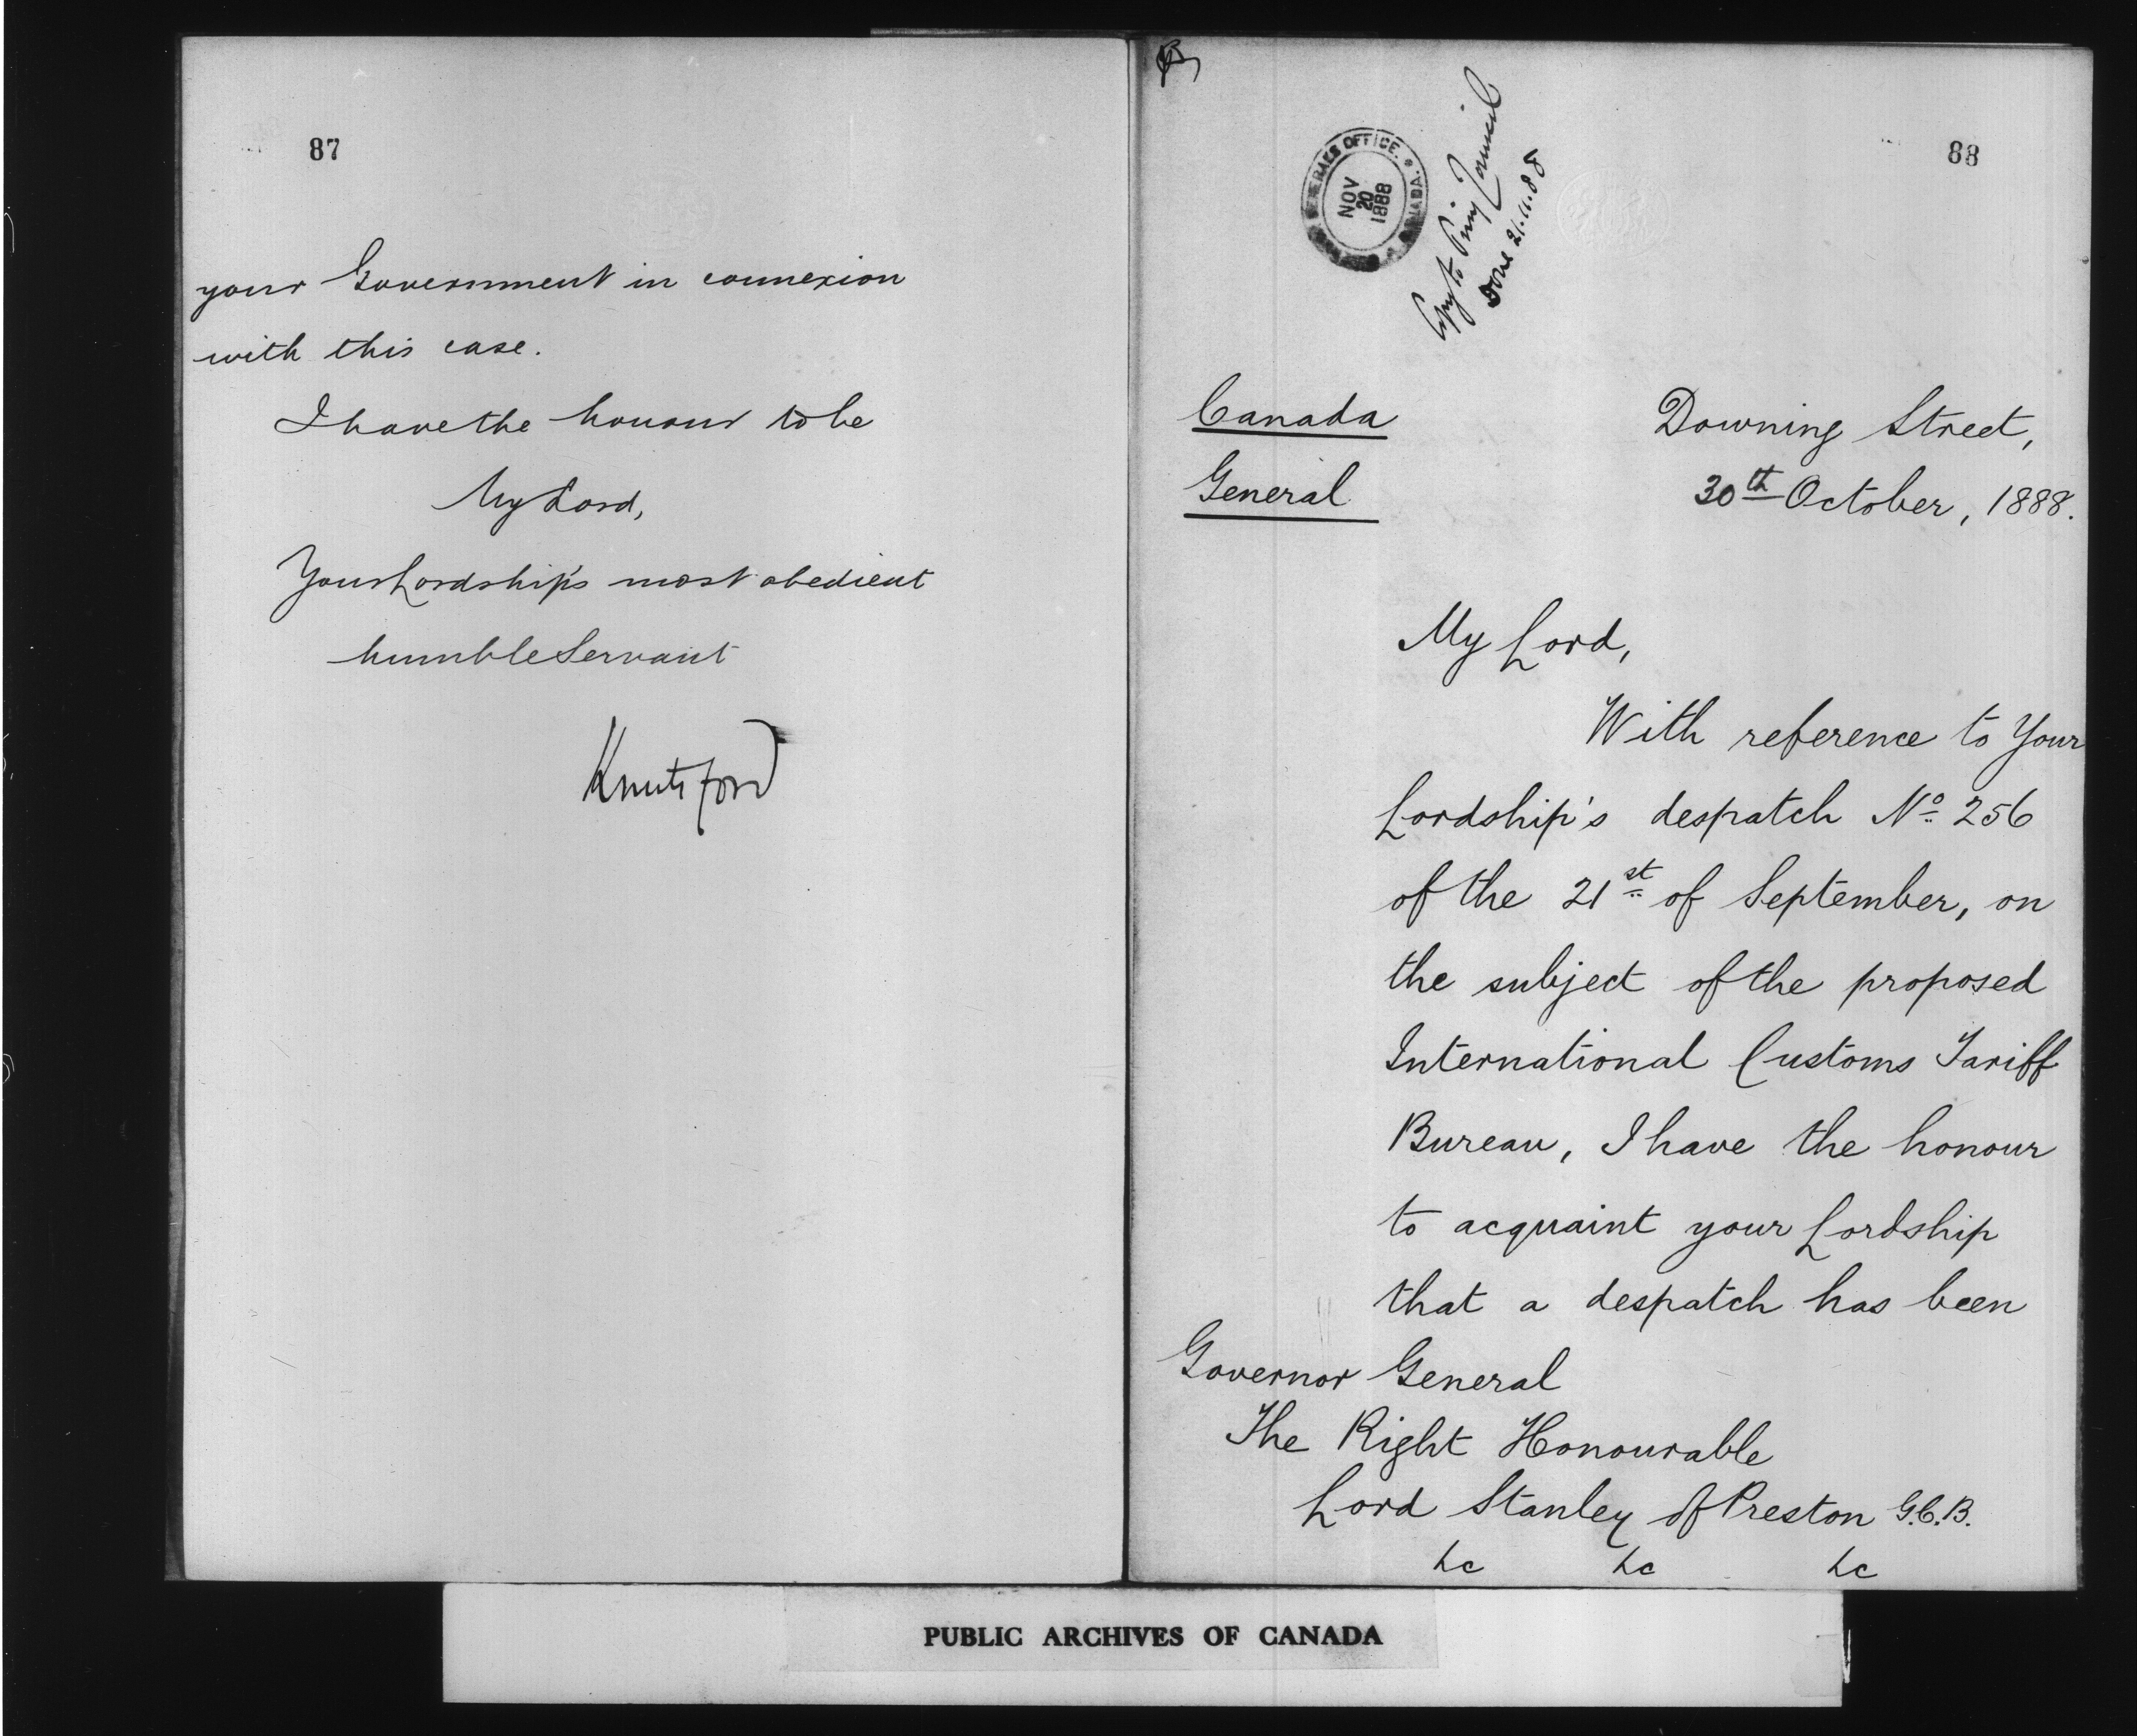 87
your Government in connexion
with this case.
I have the honour to be
My Lord,
Your Lordship's most obedient
humble Servant
Knutsford
88
GENERAL'S OFFICE. * CANADA.
NOV
20
1888
Copy to Privy Council
Done 21.11.88
Canada
General
Downing Street,
30th October, 1888.
My Lord,
With reference to Your
Lordship's despatch No. 256
of the 21st of September, on
the subject of the proposed
International Customs Tariff
Bureau, I have the honour
to acquaint your Lordship
that a despatch has been
Governor General
The Right Honourable
Lord Stanley of Preston G.C.B.
&c &c &c
PUBLIC ARCHIVES OF CANADA